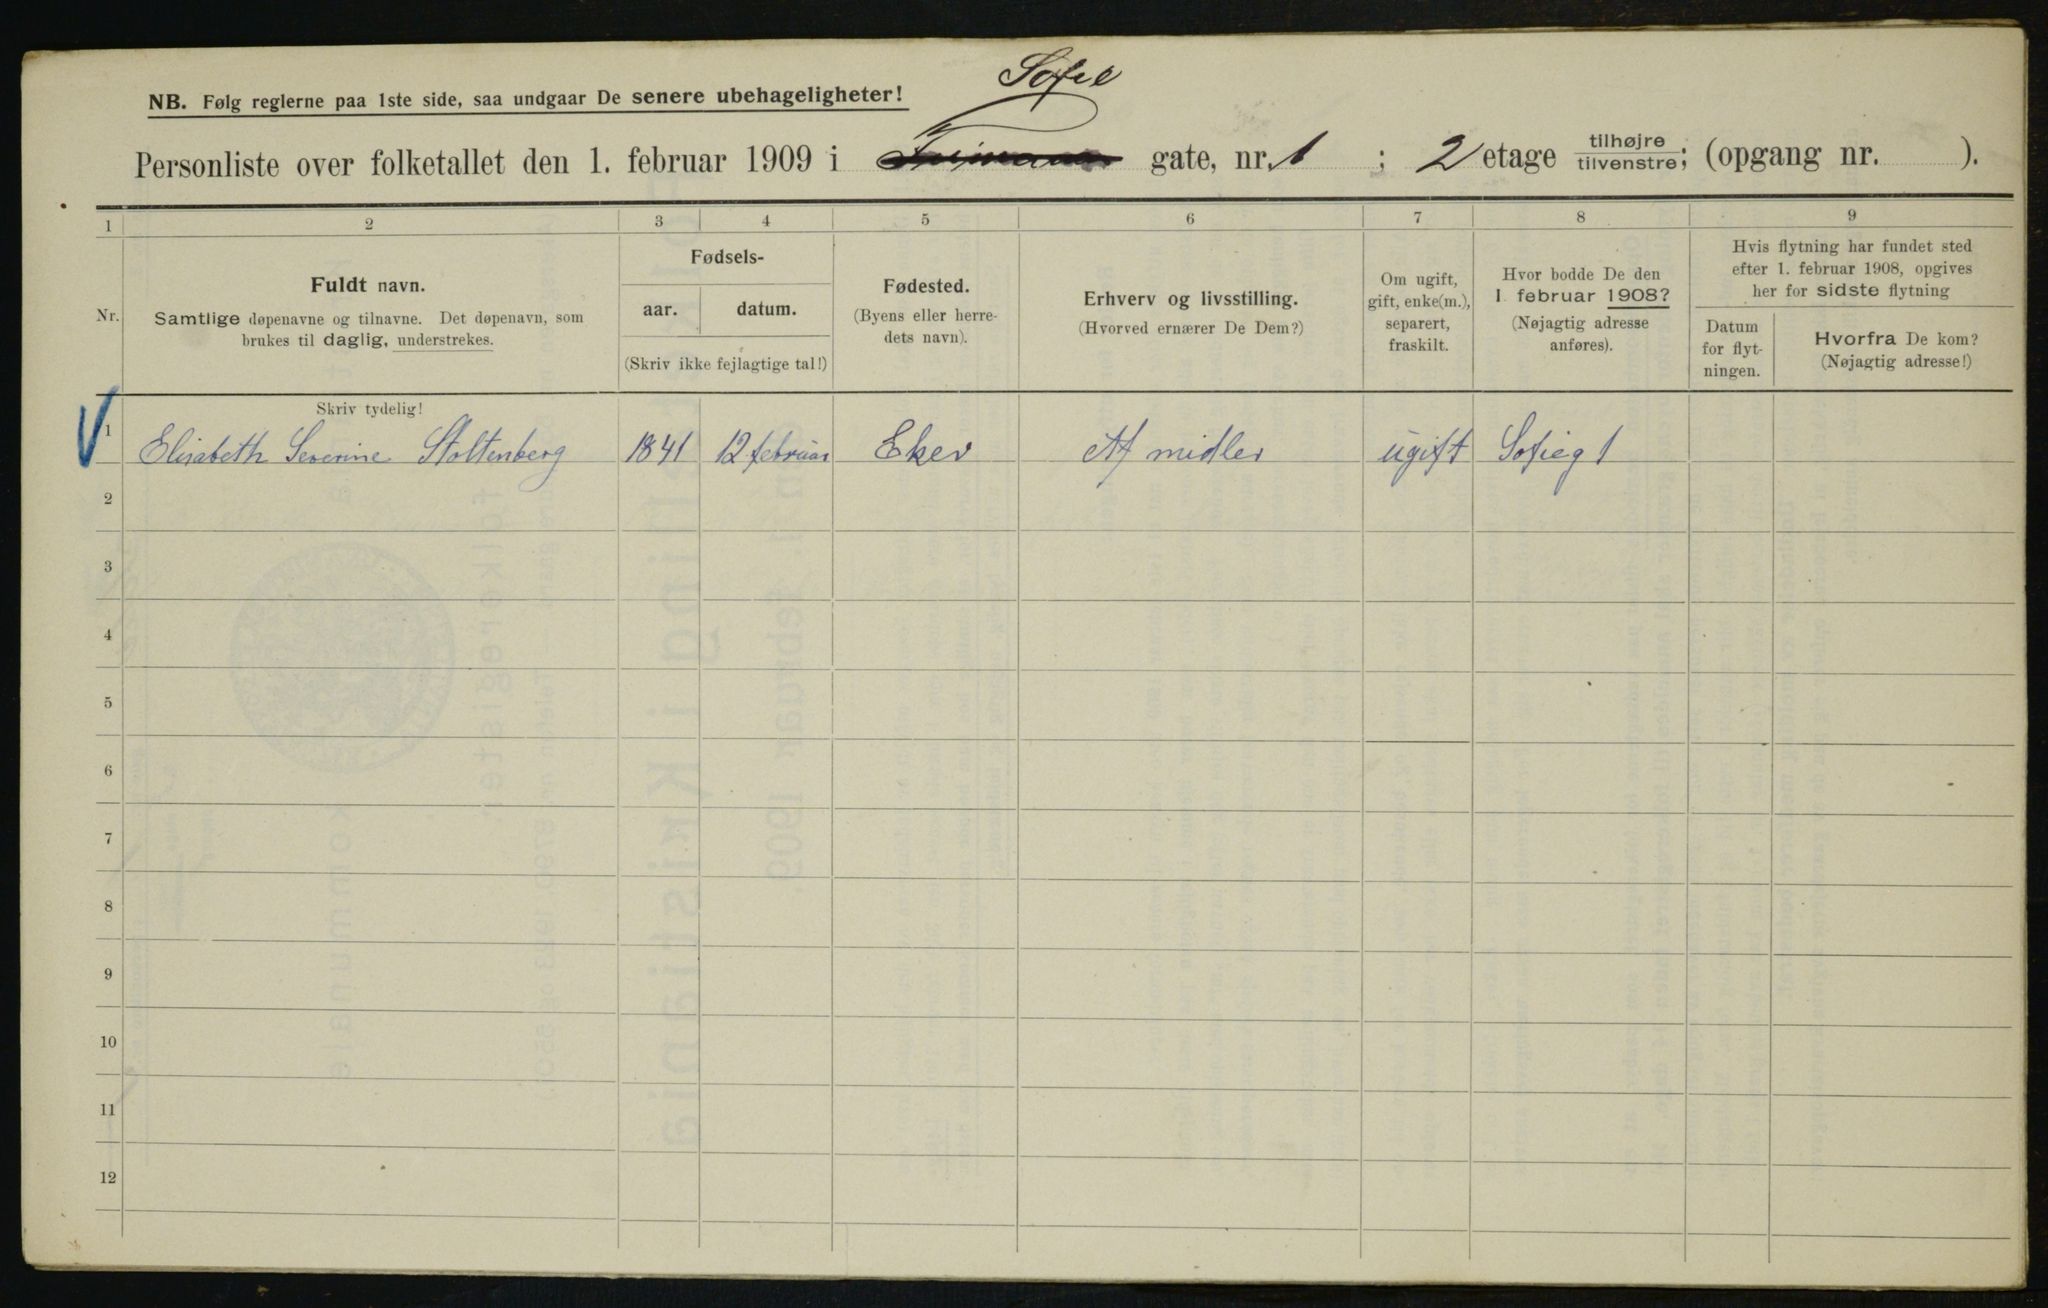 NB. Følg reglerne paa 1ste side, saa undgaar De senere ubehageligheter!
Sofie
Personliste over folketallet den 1. februar 1909 i gate, nr. 1 ; 2 etage tilhøjre tilvenstre; (opgang nr. ).
1 2 3 4 5 6 7 8 9
Nr.
Fuldt navn.
Samtlige døpenavne og tilnavne. Det døpenavn, som
brukes til daglig, understrekes.
Fødsels-
aar. datum.
(Skriv ikke fejlagtige tal!)
Fødested.
(Byens eller herre-
dets navn).
Erhverv og livsstilling.
(Hvorved ernærer De Dem?)
Om ugift,
gift, enke(m.),
separert,
fraskilt.
Hvor bodde De den
1 februar 1908?
(Nøjagtig adresse
anføres).
Hvis flytning har fundet sted
efter 1. februar 1908, opgives
her for sidste flytning
Datum
for flyt-
ningen.
Hvorfra De kom?
(Nøjagtig adresse!)
Skriv tydelig!
1 Elisabeth Severine Stoltenberg 1841 12 februar Eker Af midler ugift Sofieg 1
2
3
4
5
6
7
8
9
10
11
12